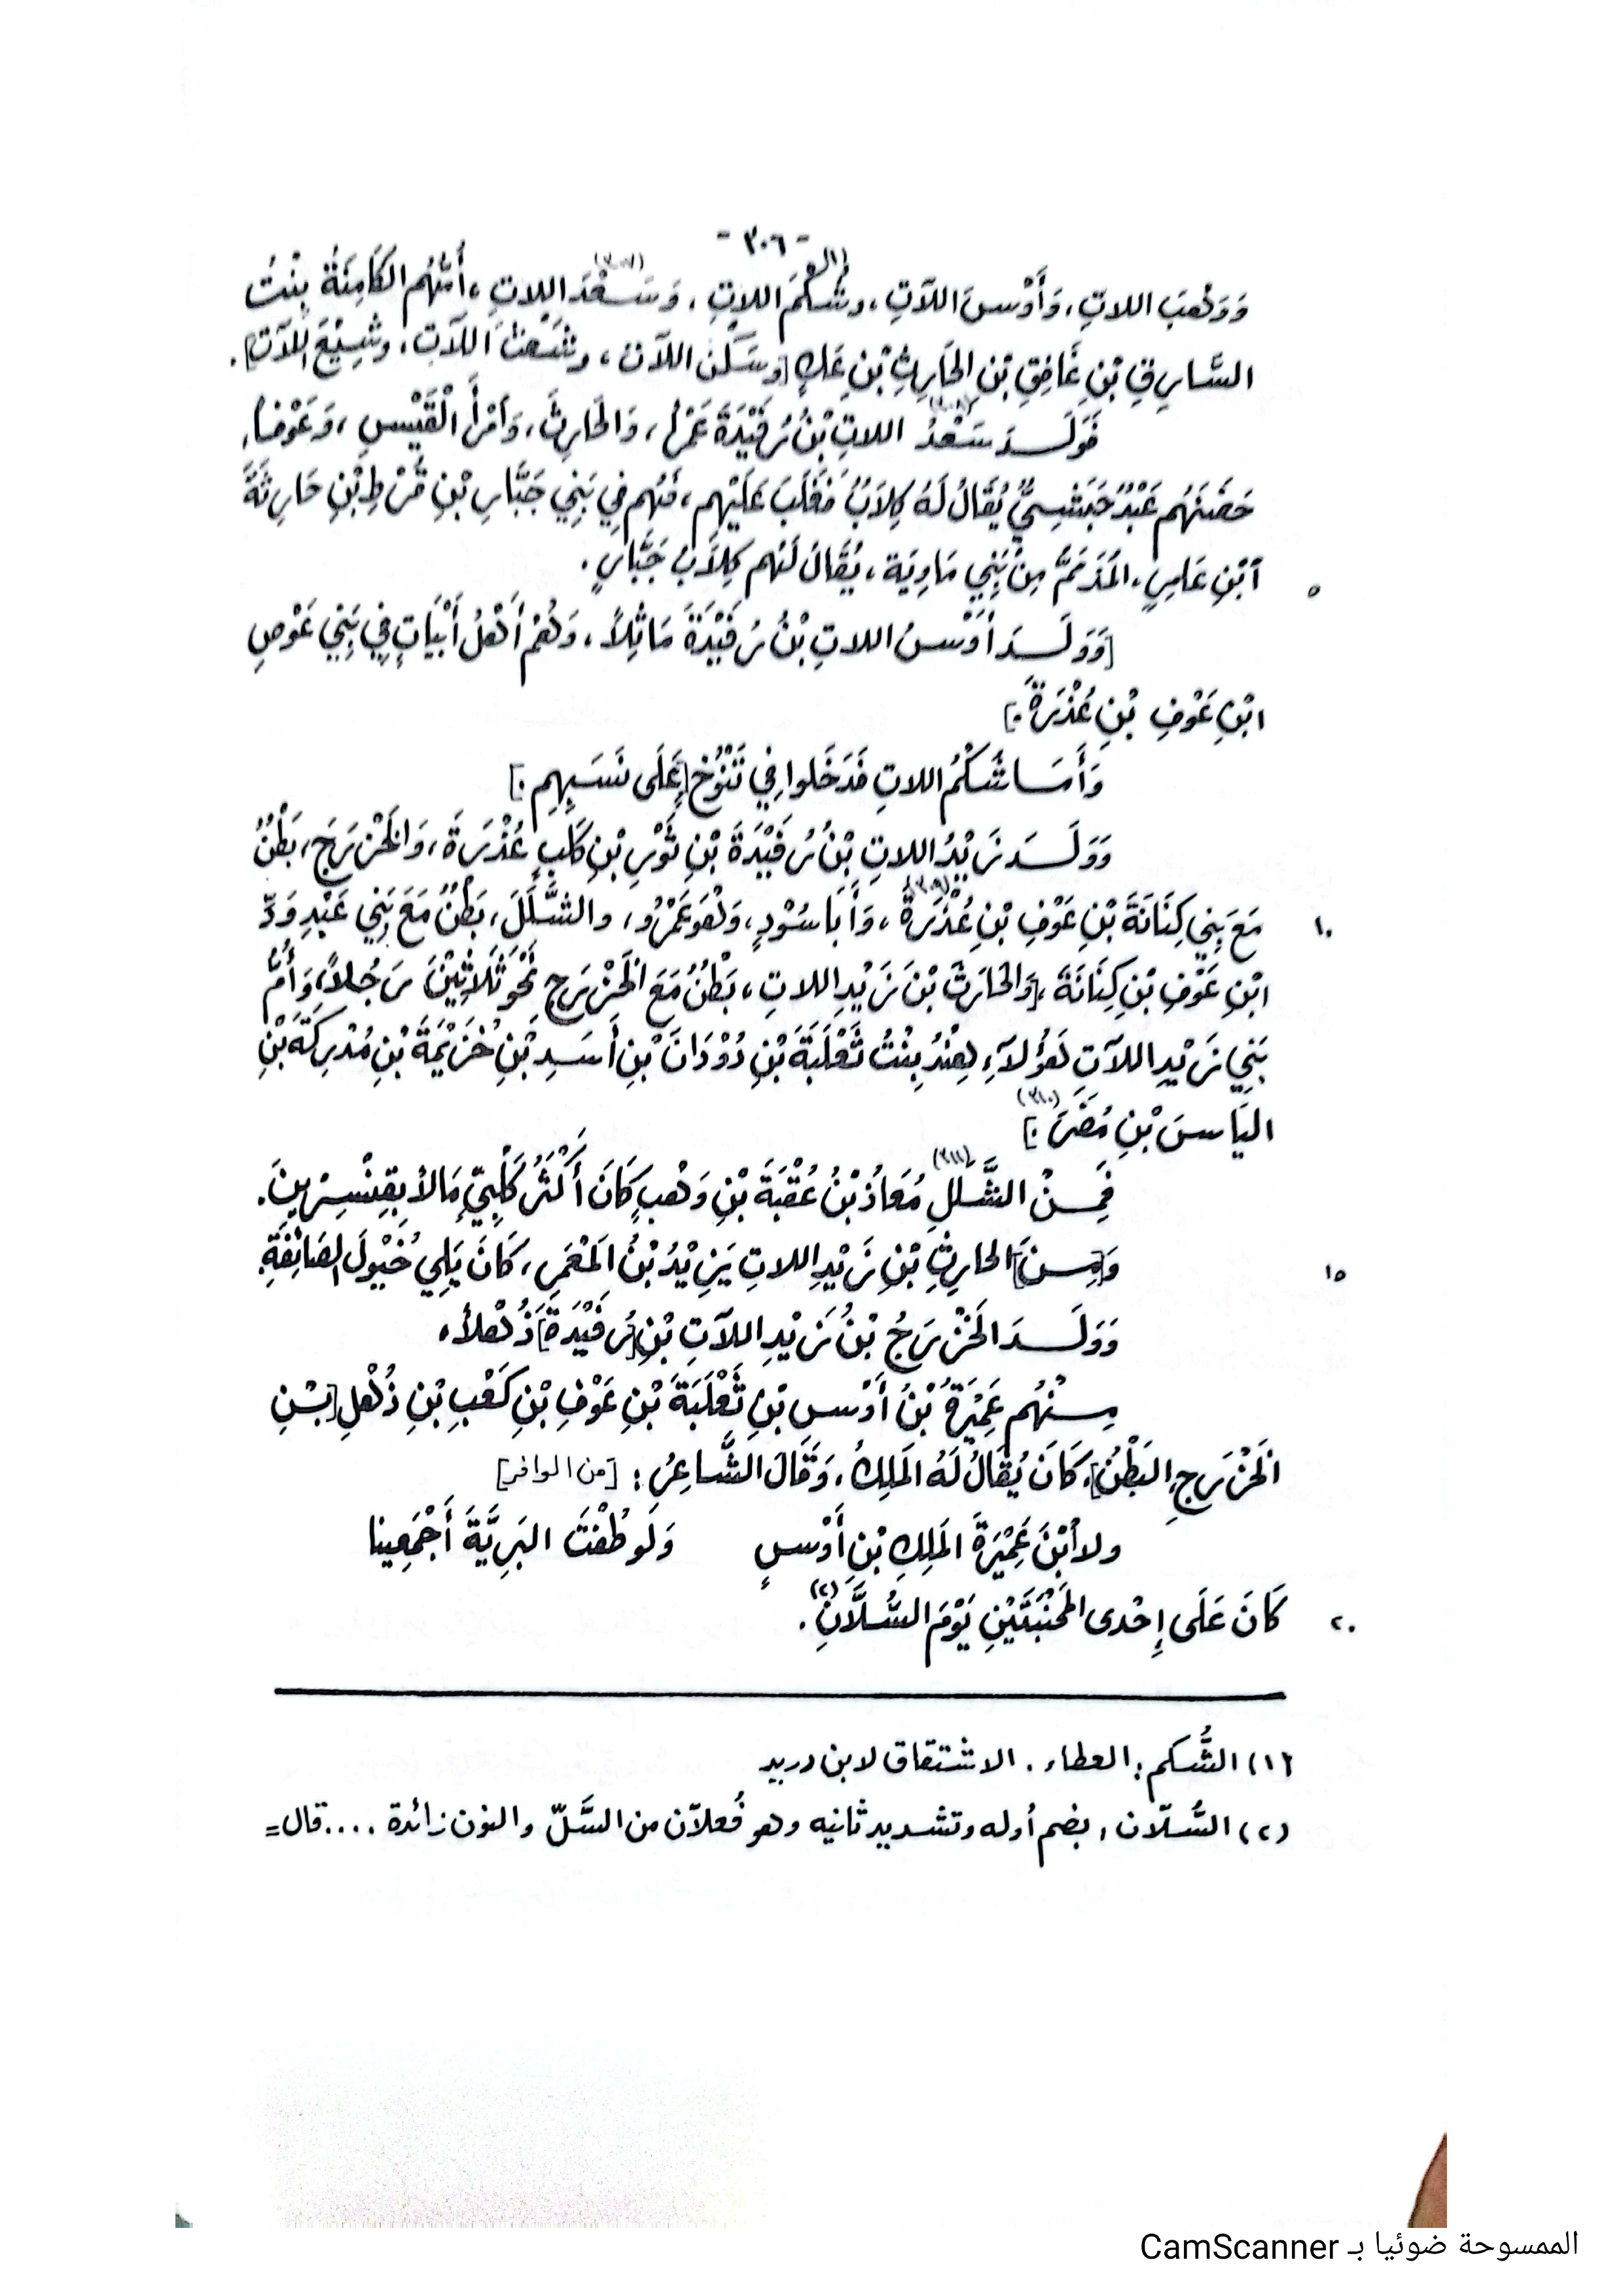 - ٣٠٦ -
وَوَهْبَ اللاتِ، وَأَوْسَ اللآتِ، وشُكْمَ اللاتِ(١)، وَسَعْدَ اللاتِ(٣٠٧)، أُمُّهُم الكَامِنَةُ بِنْتُ
السَّارِقِ بْنِ غَافِقِ بْنِ الحَارِثِ بْنِ عَكٍ [وسَكَنَ اللآت، وشَعْثَ اللآتِ، وشَيْعَ اللآتِ].
فَوَلَدَ سَعْدُ(٣٠٨) اللاتِ بْنُ رُفَيْدَةَ عَمْراً، وَالحَارِثَ، وَآمْرَأَ الْقَيْسِ، وَعَوْفاً،
حَضَنَهُم عَبْدٌ حَبَشِيٌّ يُقَالُ لَهُ كِلَابُ فَغَلَبَ عَلَيْهِم، فَهُم فِي بَنِي جَبَّارِ بْنِ قُرْطِ بْنِ حَارِثَةَ
٥ آبْنِ عَامِرٍ، المُذَمَّمُ مِنْ بَنِي مَاوِيَة، يُقَالُ لَهُم كِلَابُ جَبَّارٍ.
[وَوَلَدَ أَوْسُ اللاتِ بْنُ رُفَيْدَةَ مَاثِلاً، وَهُمْ أَهْلُ أَبْيَاتٍ فِي بَنِي عَوْصِ
ابْنِ عَوْفِ بْنِ عُذْرَةَ.]
وَأَمَا شُكْمُ اللاتِ فَدَخَلوا فِي تَنُوْخٍ [عَلَى نَسَبِهِم.]
وَوَلَدَ زَيْدُ اللاتِ بْنُ رُفَيْدَةَ بْنِ ثَوْرِ بْنِ كَلْبٍ عُذْرَةَ، وَالخَزْرَجَ، بَطْنٌ
١٠ مَعَ بَنِي كِنَانَةَ بْنِ عَوْفِ بْنِ عُذْرَةَ(٣٠٩)، وَأَبَا سُوْدٍ، وَهُوَ عَمْرُو، والشَّلَلَ، بَطْنٌ مَعَ بَنِي عَبْدِ وَدِّ
ابْنِ عَوْفِ بْنِ كِنَانَةَ، [وَالحَارِثَ بْنَ زَيْدِ اللاتِ، بَطْنٌ مَعَ الخَزْرَجِ نَحْوَ ثَلَاثِيْنَ رَجُلاً، وَأُمُّ
بَنِي زَيْدِ اللآتِ هَؤُلآءِ هِنْدُ بِنْتُ ثَعْلَبَةَ بْنِ دُوْدَانَ بْنِ أَسَدِ بْنِ خُزَيْمَةَ بْنِ مُدْرِكَةَ بْنِ
اليَاسَ بْنِ مُضَرَ(٣١٠).]
فَمِنْ الشَّلَلِ(٣١١) مُعَاذُ بْنُ عُقْبَةَ بْنِ وَهْبٍ كَانَ أَكْثَرَ كَلْبِيٍّ مَالاً بِقِنَّسْرِينَ.
١٥ وَ[مِنَ] الحارِثِ بْنِ زَيْدِ اللاتِ يَزِيْدُ بْنُ المَعْمَرِ، كَانَ يَلِي خُيُولَ الصَائِفَةِ.
وَوَلَدَ الخَزْرَجُ بْنُ زَيْدِ اللآتِ بْنِ [رُفَيْدَةَ] ذُهْلاً.
مِنْهُم عَمِيْرَةُ بْنُ أَوْسِ بْنِ ثَعْلَبَةَ بْنِ عَوْفِ بْنِ كَعْبِ بْنِ ذُهْلِ [بْنِ
الخَزْرَجِ البَطْنُ]، كَانَ يُقَالُ لَهُ المَلِكُ، وَقَالَ الشَّاعِرُ: [من الوافر]
ولا آبْنَ عَمِيْرَةَ المَلِكِ بْنِ أَوْسٍ وَلَو طُفْتَ البَرِيَّةَ أَجْمَعِينا
٢٠ كَانَ عَلَى إِحْدى المُجَنِّبَتَيْنِ يَوْمَ السُّلَّانِ(٢).
(١) الشُّكم: العطاء. الاشتقاق لابن دريد
(٢) السُّلّان، بضم أوله وتشديد ثانيه وهو فُعلآن من السَّلّ والنون زائدة ....قال=
الممسوحة ضوئيا بـ CamScanner